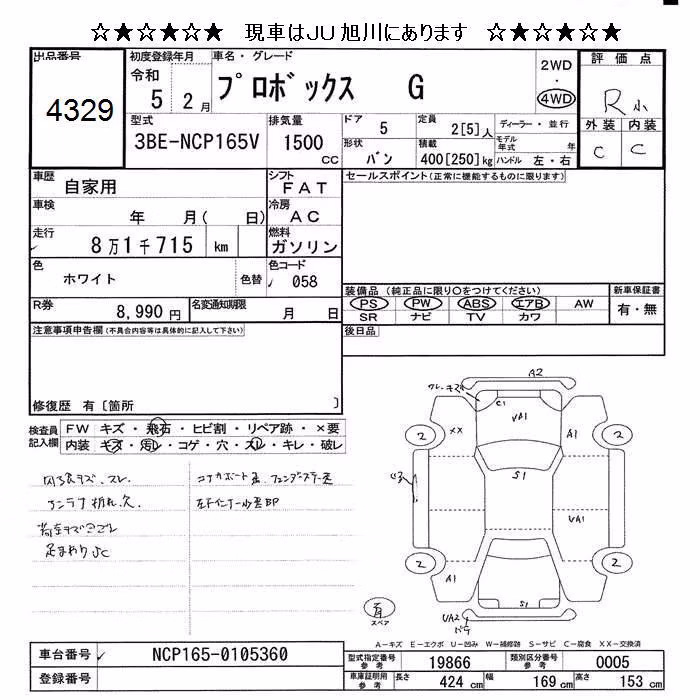 ☆★☆★☆★ 現車はJU旭川にあります ☆★☆★☆★
出品番号
4329
初度登録年月
令和
5 2月
車名・グレード
プロボックス G
2WD
4WD
評価点
R小
外装 内装
C C
型式
3BE-NCP165V
排気量
1500
CC
ドア
5
定員
2[5]人
ディーラー・並行
モデル年式 年
形状
バン
積載
400[250]kg
ハンドル 左・右
車歴
自家用
シフト
FAT
セールスポイント(正常に機能するものに限ります)
車検
年 月( 日)
冷房
AC
走行
8万1千715 km
燃料
ガソリン
色
ホワイト
色替
色コード
058
装備品 (純正品に限り○をつけてください)
PS PW ABS エアB AW
SR ナビ TV カワ
新車保証書
有・無
R券
8,990円
名変通知期限
月 日
後日品
注意事項申告欄(不具合内容等は具体的に記入して下さい)
修復歴 有[箇所 ]
検査員記入欄
FW キズ・飛石・ヒビ割・リペア跡・×要
内装 キズ・汚レ・コゲ・穴・スレ・キレ・破レ
足まわりSC
A2
C1
VA1
XX
A1
2
2
S1
VA1
2
2
A1
S1
UA2
有
スペア
A-キズ E-エクボ U-凹み W-補修跡 S-サビ C-腐食 XX-交換済
車台番号
NCP165-0105360
登録番号
型式指定番号 参考
19866
類別区分番号 参考
0005
車庫証明用 参考
長さ 424 cm
幅 169 cm
高さ 153 cm